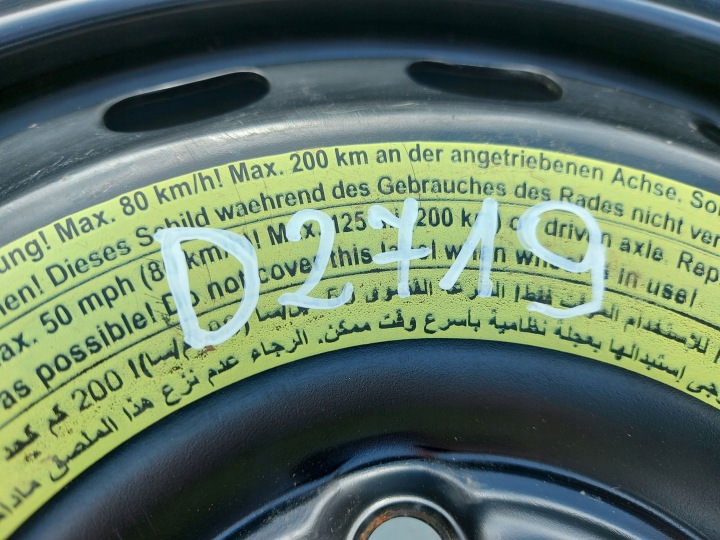 ung! Max. 80 km/h! Max. 200 km an der angetriebenen Achse. Sol
en! Dieses Schild waehrend des Gebrauches des Rades nicht ver
ax. 50 mph (8 km/h)! Max. 125 (200 km) on driven axle. Rep
as possible! Do not cover this label when wheel is in use!
للاستخدام فقط! السرعة القصوى 200 كم
رجى إستبدالها بعجلة نظامية بأسرع وقت ممكن. الرجاء عدم نزع هذا الملصق مادام
D2719